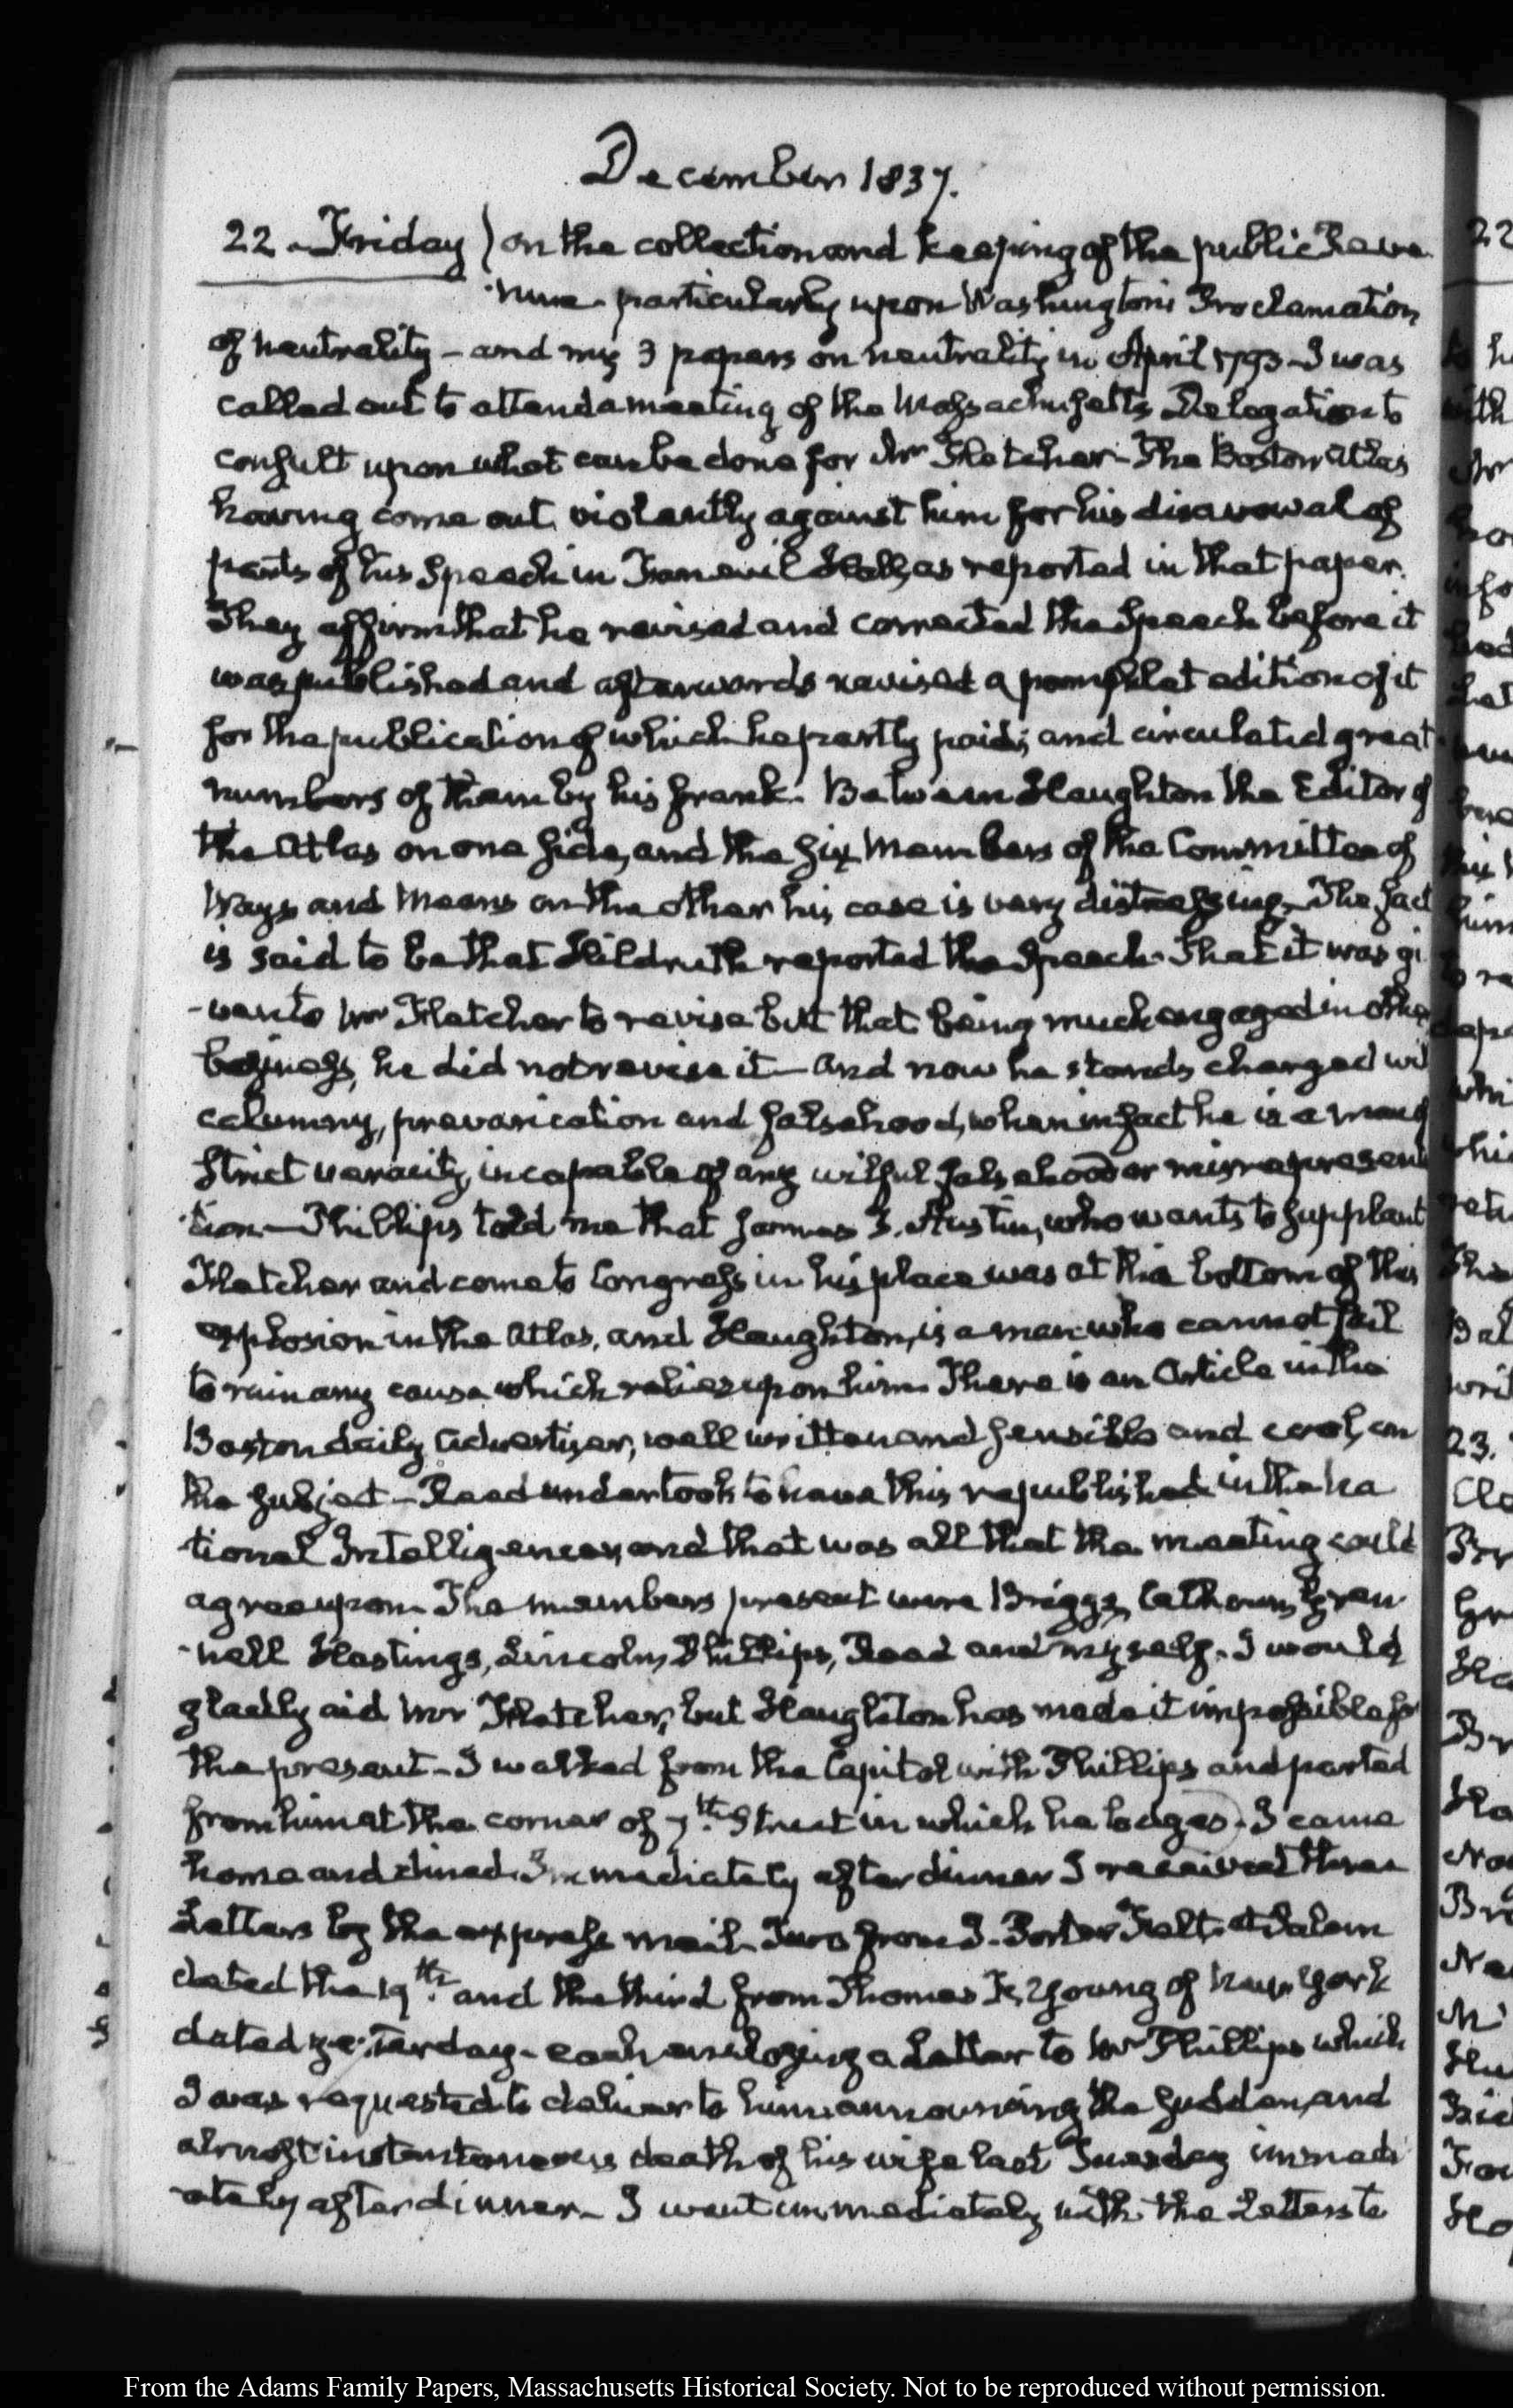 December 1837.
22 - Friday) on the collection and keeping of the public Reve
nue - particularly upon Washington's Proclamation
of neutrality - and my 3 papers on neutrality in April 1793 - I was
called out to attend a meeting of the Massachusetts Delegation to
consult upon what can be done for Mr Fletcher - The Boston Atlas
having come out violently against him for his disavowal of
parts of his Speech in Faneuil Hall, as reported in that paper.
They affirm that he revised and corrected the Speech before it
was published and afterwards revised a pamphlet edition of it
for the publication of which he partly paid; and circulated great
numbers of them by his frank. Between Haughton the Editor of
the Atlas on one side, and the six Members of the Committee of
Ways and Means on the other his case is very distressing. The fact
is said to be that Hildreth reported the Speech. That it was gi
-ven to Mr Fletcher to revise but that being much engaged in other
business, he did not revise it - and now he stands charged wi
calumny, prevarication and falsehood, when in fact he is a man of
strict veracity, incapable of any wilful falsehood or misrepresent
tion - Phillips told me that James T. Austin, who wants to supplant
Fletcher and come to Congress in his place was at the bottom of this
explosion in the Atlas, and Haughton, is a man who cannot fail
to ruin any cause which relies upon him. There is an Article in the
Boston daily Advertiser, well written and sensible and cool, on
the subject - Reed undertook to have this republished in the Na
tional Intelligencer, and that was all that the meeting could
agree upon. The members present were Briggs, Calhoun, Gren
-nell Hastings, Lincoln, Phillips, Reed and myself. I would
gladly aid Mr Fletcher, but Haughton has made it impossible for
the present - I walked from the Capitol with Phillips and parted
from him at the corner of 7th. Street in which he lodges. I came
home and dined. Immediately after dinner I received three
Letters by the express mail. Two from J. Porter Felt at Salem
dated the 19th. and the third from Thomas K. Young of New York
dated yesterday - each enclosing a Letter to Mr Phillips which
I was requested to deliver to him announcing the sudden, and
almost instantaneous death of his wife last Tuesday immedi
-ately after dinner - I went immediately with the Letters to
From the Adams Family Papers, Massachusetts Historical Society. Not to be reproduced without permission.